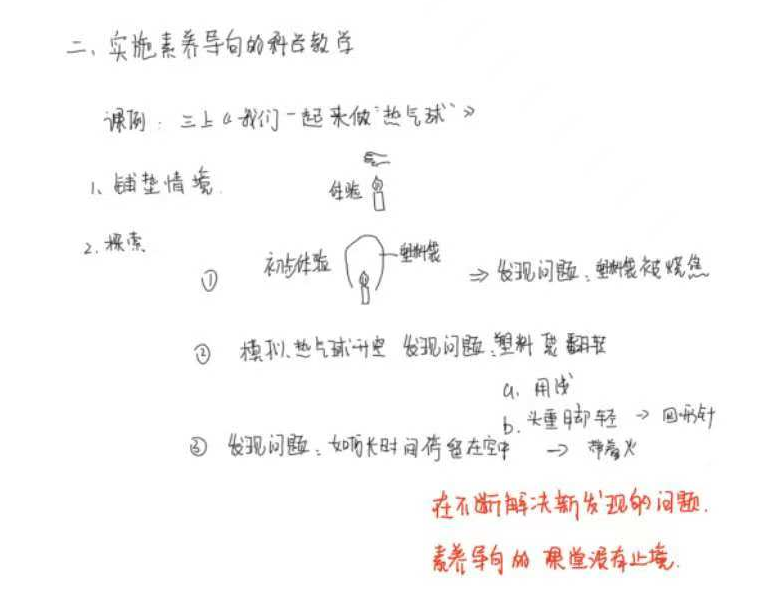 二、实施素养导向的科学教学
课例：三上《我们一起来做“热气球”》
1、铺垫情境.
体验
2.探索
① 初步体验 塑料袋 ⇒ 发现问题：塑料袋被烧焦
② 模拟热气球升空 发现问题：塑料袋翻转
a. 用
b. 头重脚轻 → 回形针
③ 发现问题：如何长时间停留在空中 → 带着火
在不断解决新发现的问题.
素养导向的课堂没有止境.